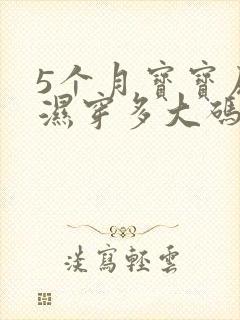 5个月寶寶
濕穿多大碼
淡寫輕雲